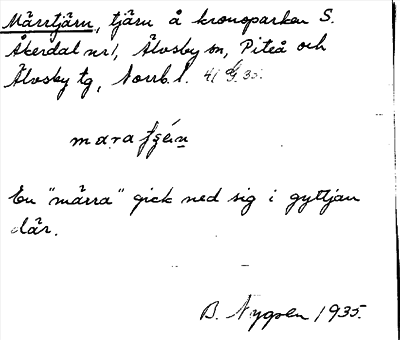 Märrtjärn, tjärn å kronoparken S.
Åkerdal nr 1, Älvsby sn, Piteå och
Älvsby tg, Norrb. l. 41 G. 35.
maraʃɟǽn
En "märra" gick ned sig i gyttjan
där.
B. Nygren 1935.